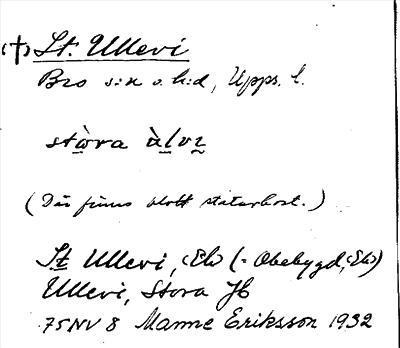 (†) St. Ullevi
Bro s:n o. h:d, Upps. l.
stɷ̀ra àlvɩ
(Där finns blott statarbost.)
St Ullevi, ‹Ek› (- Obebygd, ‹Ek›)
Ullevi, Stora Jb
75NV 8 Manne Eriksson 1932